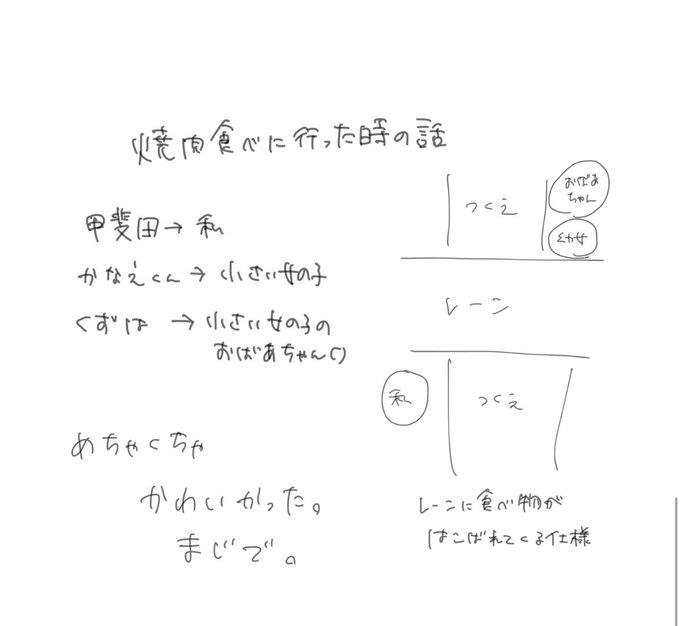 焼肉食べに行った時の話
甲斐田→私
かなえくん→小さい女の子
くずは→小さい女の子の
おばあちゃん()
めちゃくちゃ
かわいかった。
まじで。
つくえ
おばあ
ちゃん
幼女
レーン
私
つくえ
レーンに食べ物が
はこばれてくる仕様